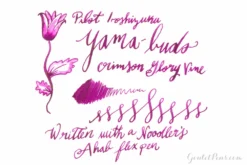 Pilot Iroshizuku
Yama-budo
Crimson Glory Vine
Written with a Noodler's
Ahab flex pen